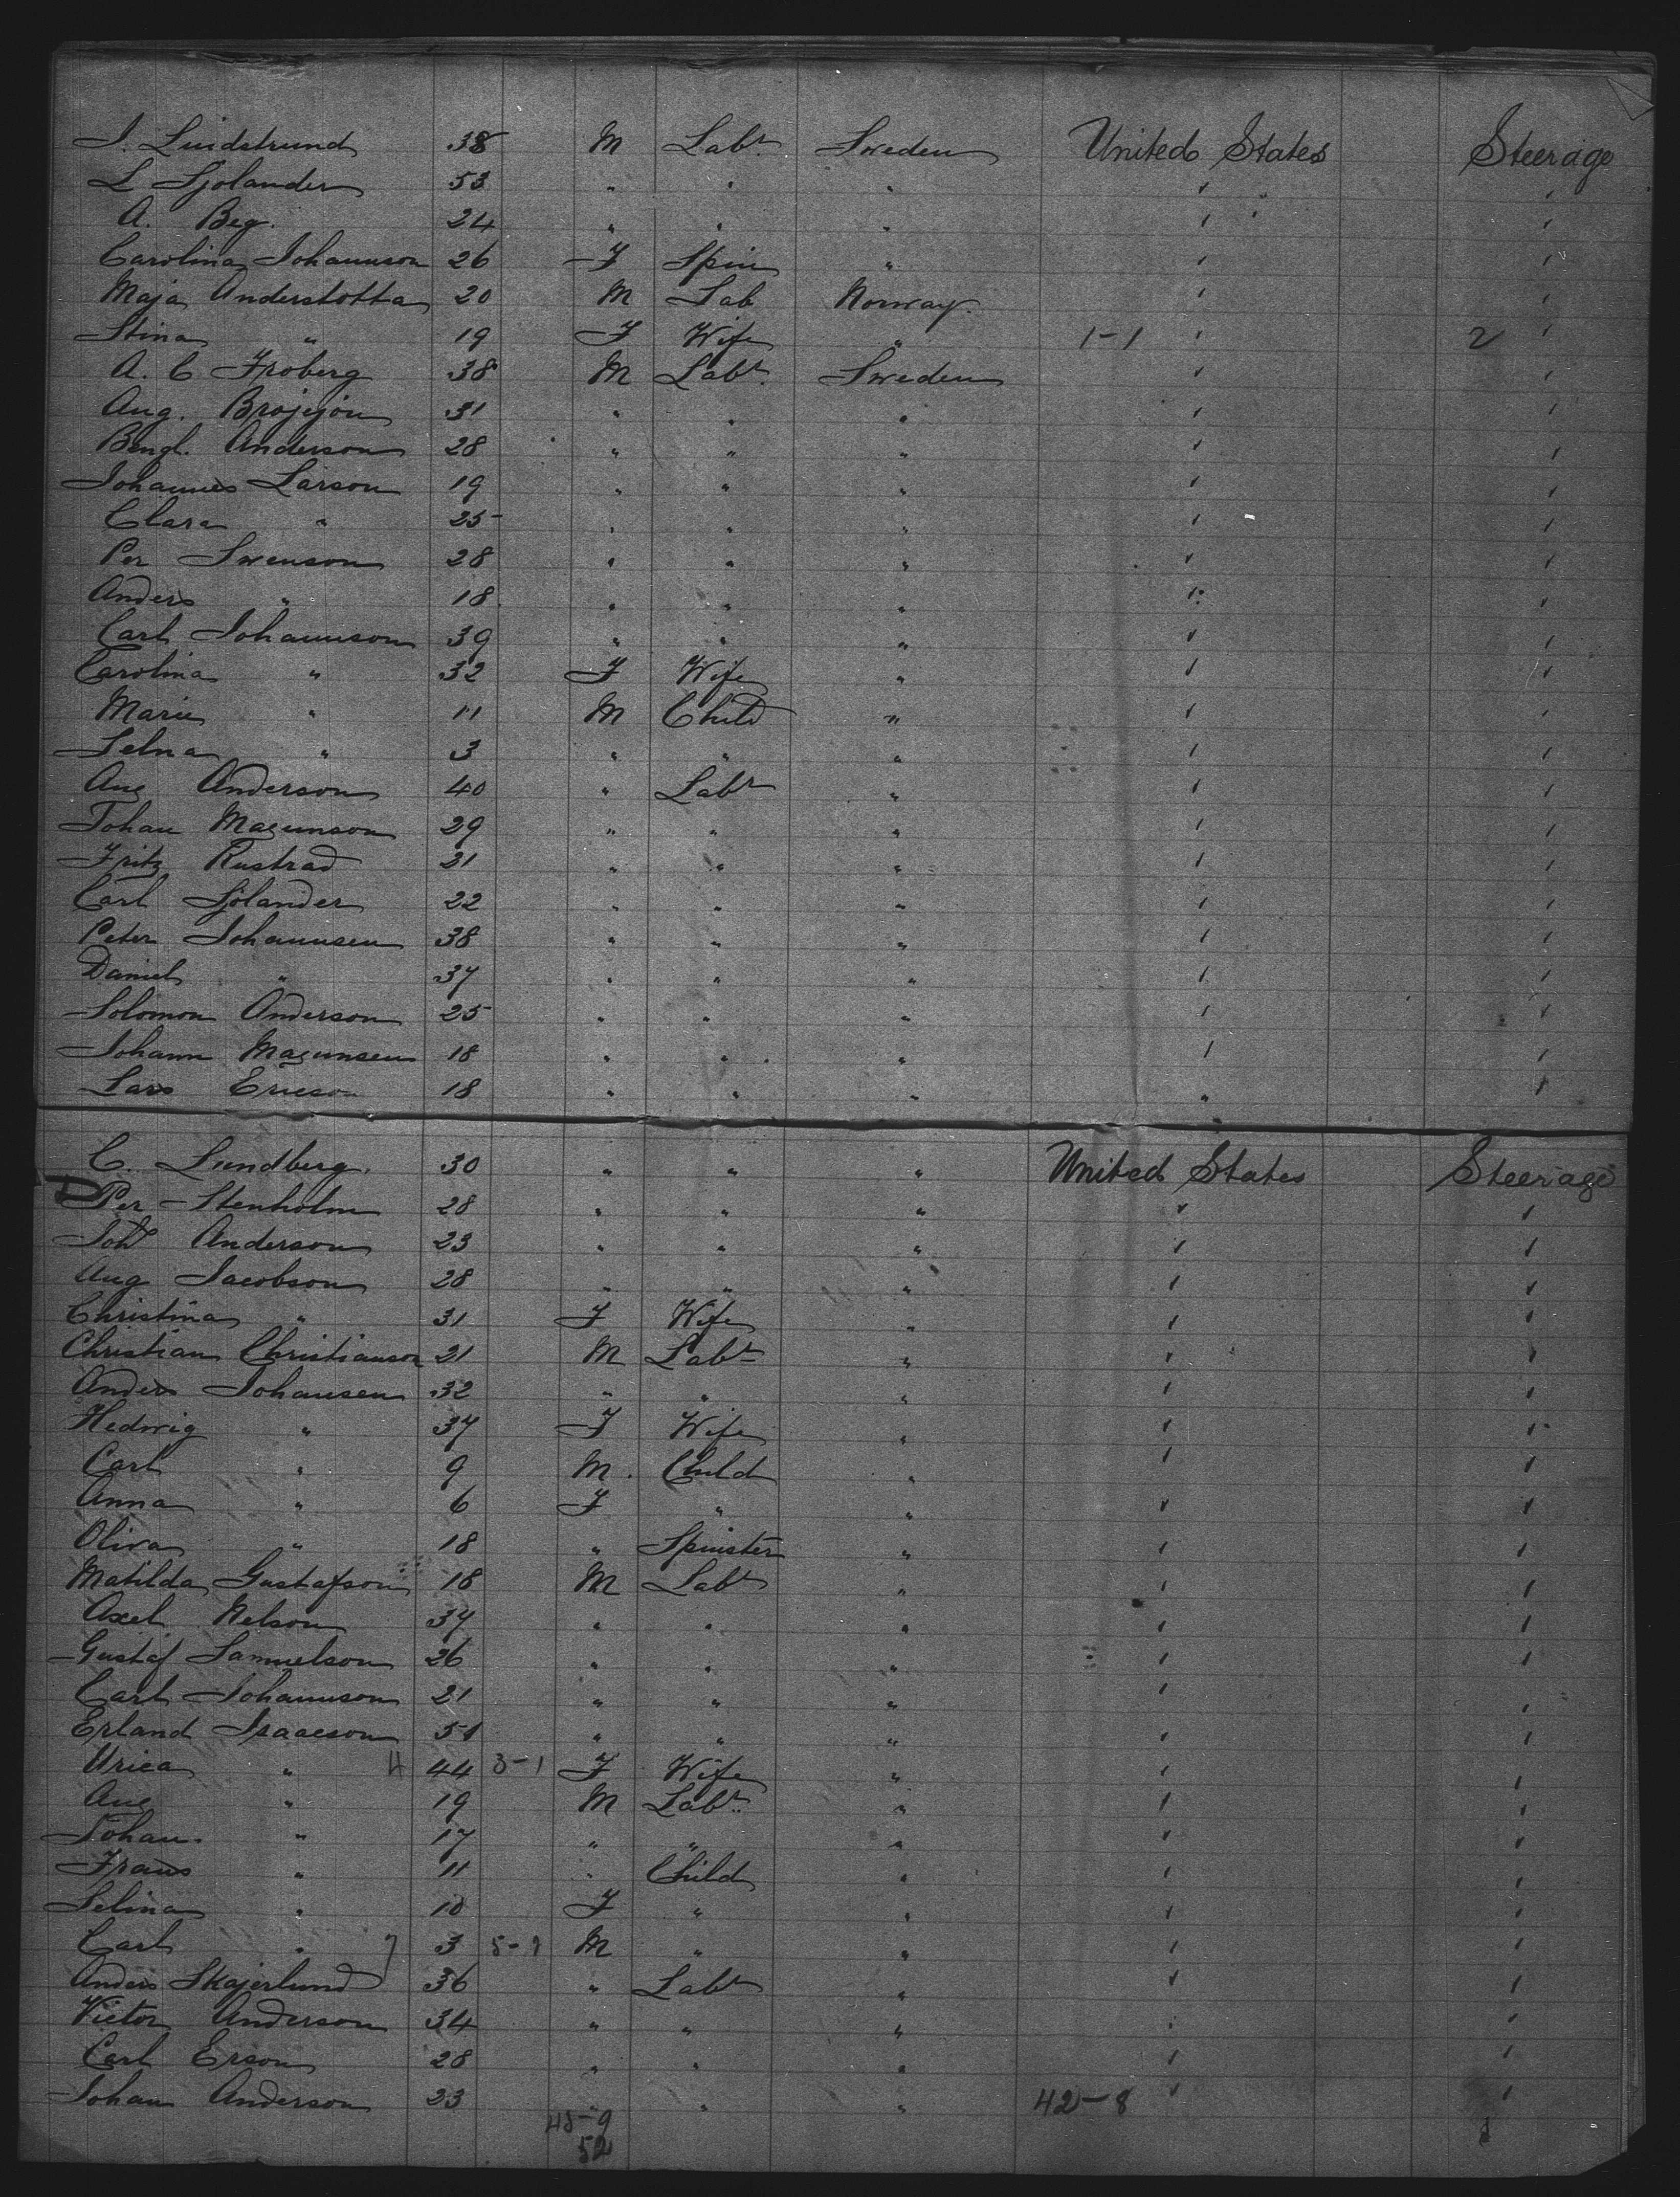 J. Lindstrund 38 M Labr. Sweden United States Steerage
L Sjolander 53 " " " " "
A. Beg. 24 " " " " "
Carolina Johannson 26 F Spin " " "
Maja Anderstotta 20 M Lab Norway. " "
Stina " 19 F Wife " 1-1 " 2 "
A. C Froberg 38 M Labr. Sweden " "
Aug. Brojejon 31 " " " " "
Bengl. Anderson 28 " " " " "
Johannes Larson 19 " " " " "
Clara " 25 " " " " "
Per Swenson 28 " " " " "
Anders " 18 " " " " "
Carl Johannson 39 " " " " "
Carolina " 32 F Wife " " "
Marie " 11 M Child " " "
Selna " 3 " " " " "
Aug Anderson 40 " Labr " " "
Johan Magunson 29 " " " " "
Fritz Rustrad 21 " " " " "
Carl Sjölander 22 " " " " "
Peter Johannsen 38 " " " " "
Daniel " 37 " " " " "
Solomon Anderson 25 " " " " "
Johann Magunsen 18 " " " " "
Lars Ericson 18 " " " " "
C. Lundberg. 30 " " " United States Steerage
D Per Stenholm 28 " " " " "
Joh Anderson 23 " " " " "
Aug Jacobson 28 " " " " "
Christina " 31 F Wife " " "
Christian Christianson 21 M Labr " " "
Anders Johansen 32 " " " " "
Hedwig " 37 F Wife " " "
Carl " 9 M. Child " " "
Anna " 6 F " " " "
Oliva " 18 " Spinster " " "
Matilda Gustafson 18 M Labr " " "
Axel Nelson 37 " " " " "
Gustaf Samuelson 26 " " " " "
Carl Johannson 21 " " " " "
Erland Isaacson 51 " " " " "
Urica " 4 44 3-1 F Wife " " "
Aug " 19 M Labr. " " "
Johan. " 17 " " " " "
Frans " 11 " Child " " "
Selina " 10 F " " " "
Carl " 7 3 5-1 M " " " "
Anders Skajerlund 36 " Labr " " "
Victor Anderson 34 " " " " "
Carl Erson 28 " " " " "
Johan Anderson 23 " " " 42-8 " "
45-9
52 8